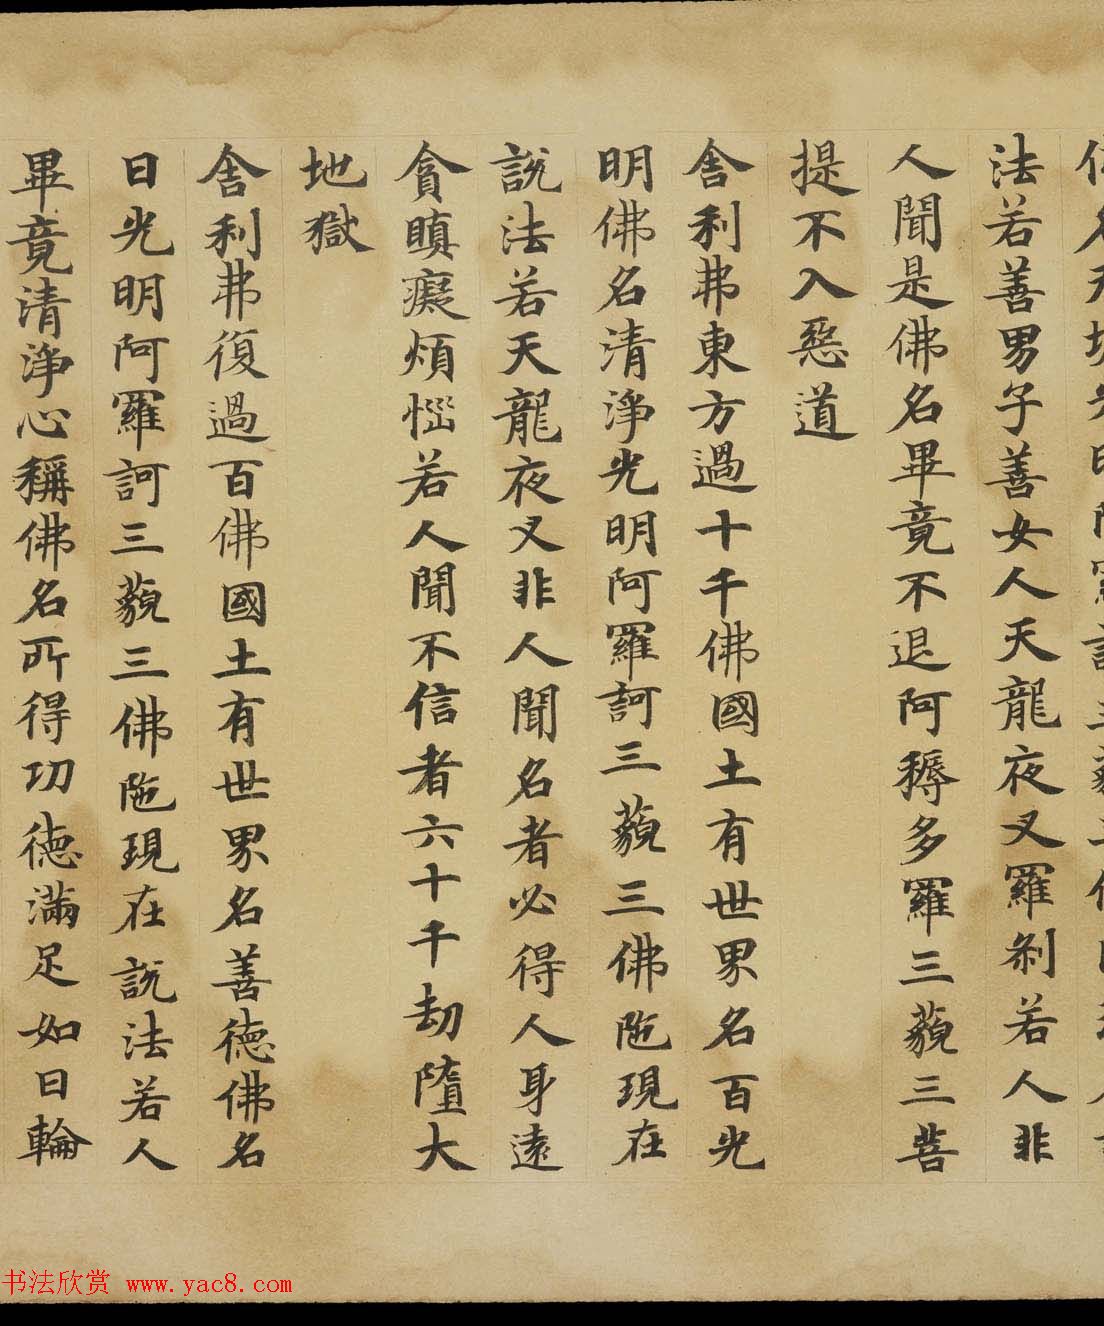 法若善男子善女人天龍夜叉羅刹若人非
人聞是佛名畢竟不退阿耨多羅三藐三菩
提不入惡道
舍利弗東方過十千佛國土有世界名百光
明佛名清淨光明阿羅訶三藐三佛陁現在
說法若天龍夜叉非人聞名者必得人身遠
貪瞋癡煩惱若人聞不信者六十千劫墮大
地獄
舍利弗復過百佛國土有世界名善德佛名
日光明阿羅訶三藐三佛陁現在說法若人
畢竟清淨心稱佛名所得功德滿足如日輪
书法欣赏 www.yac8.com